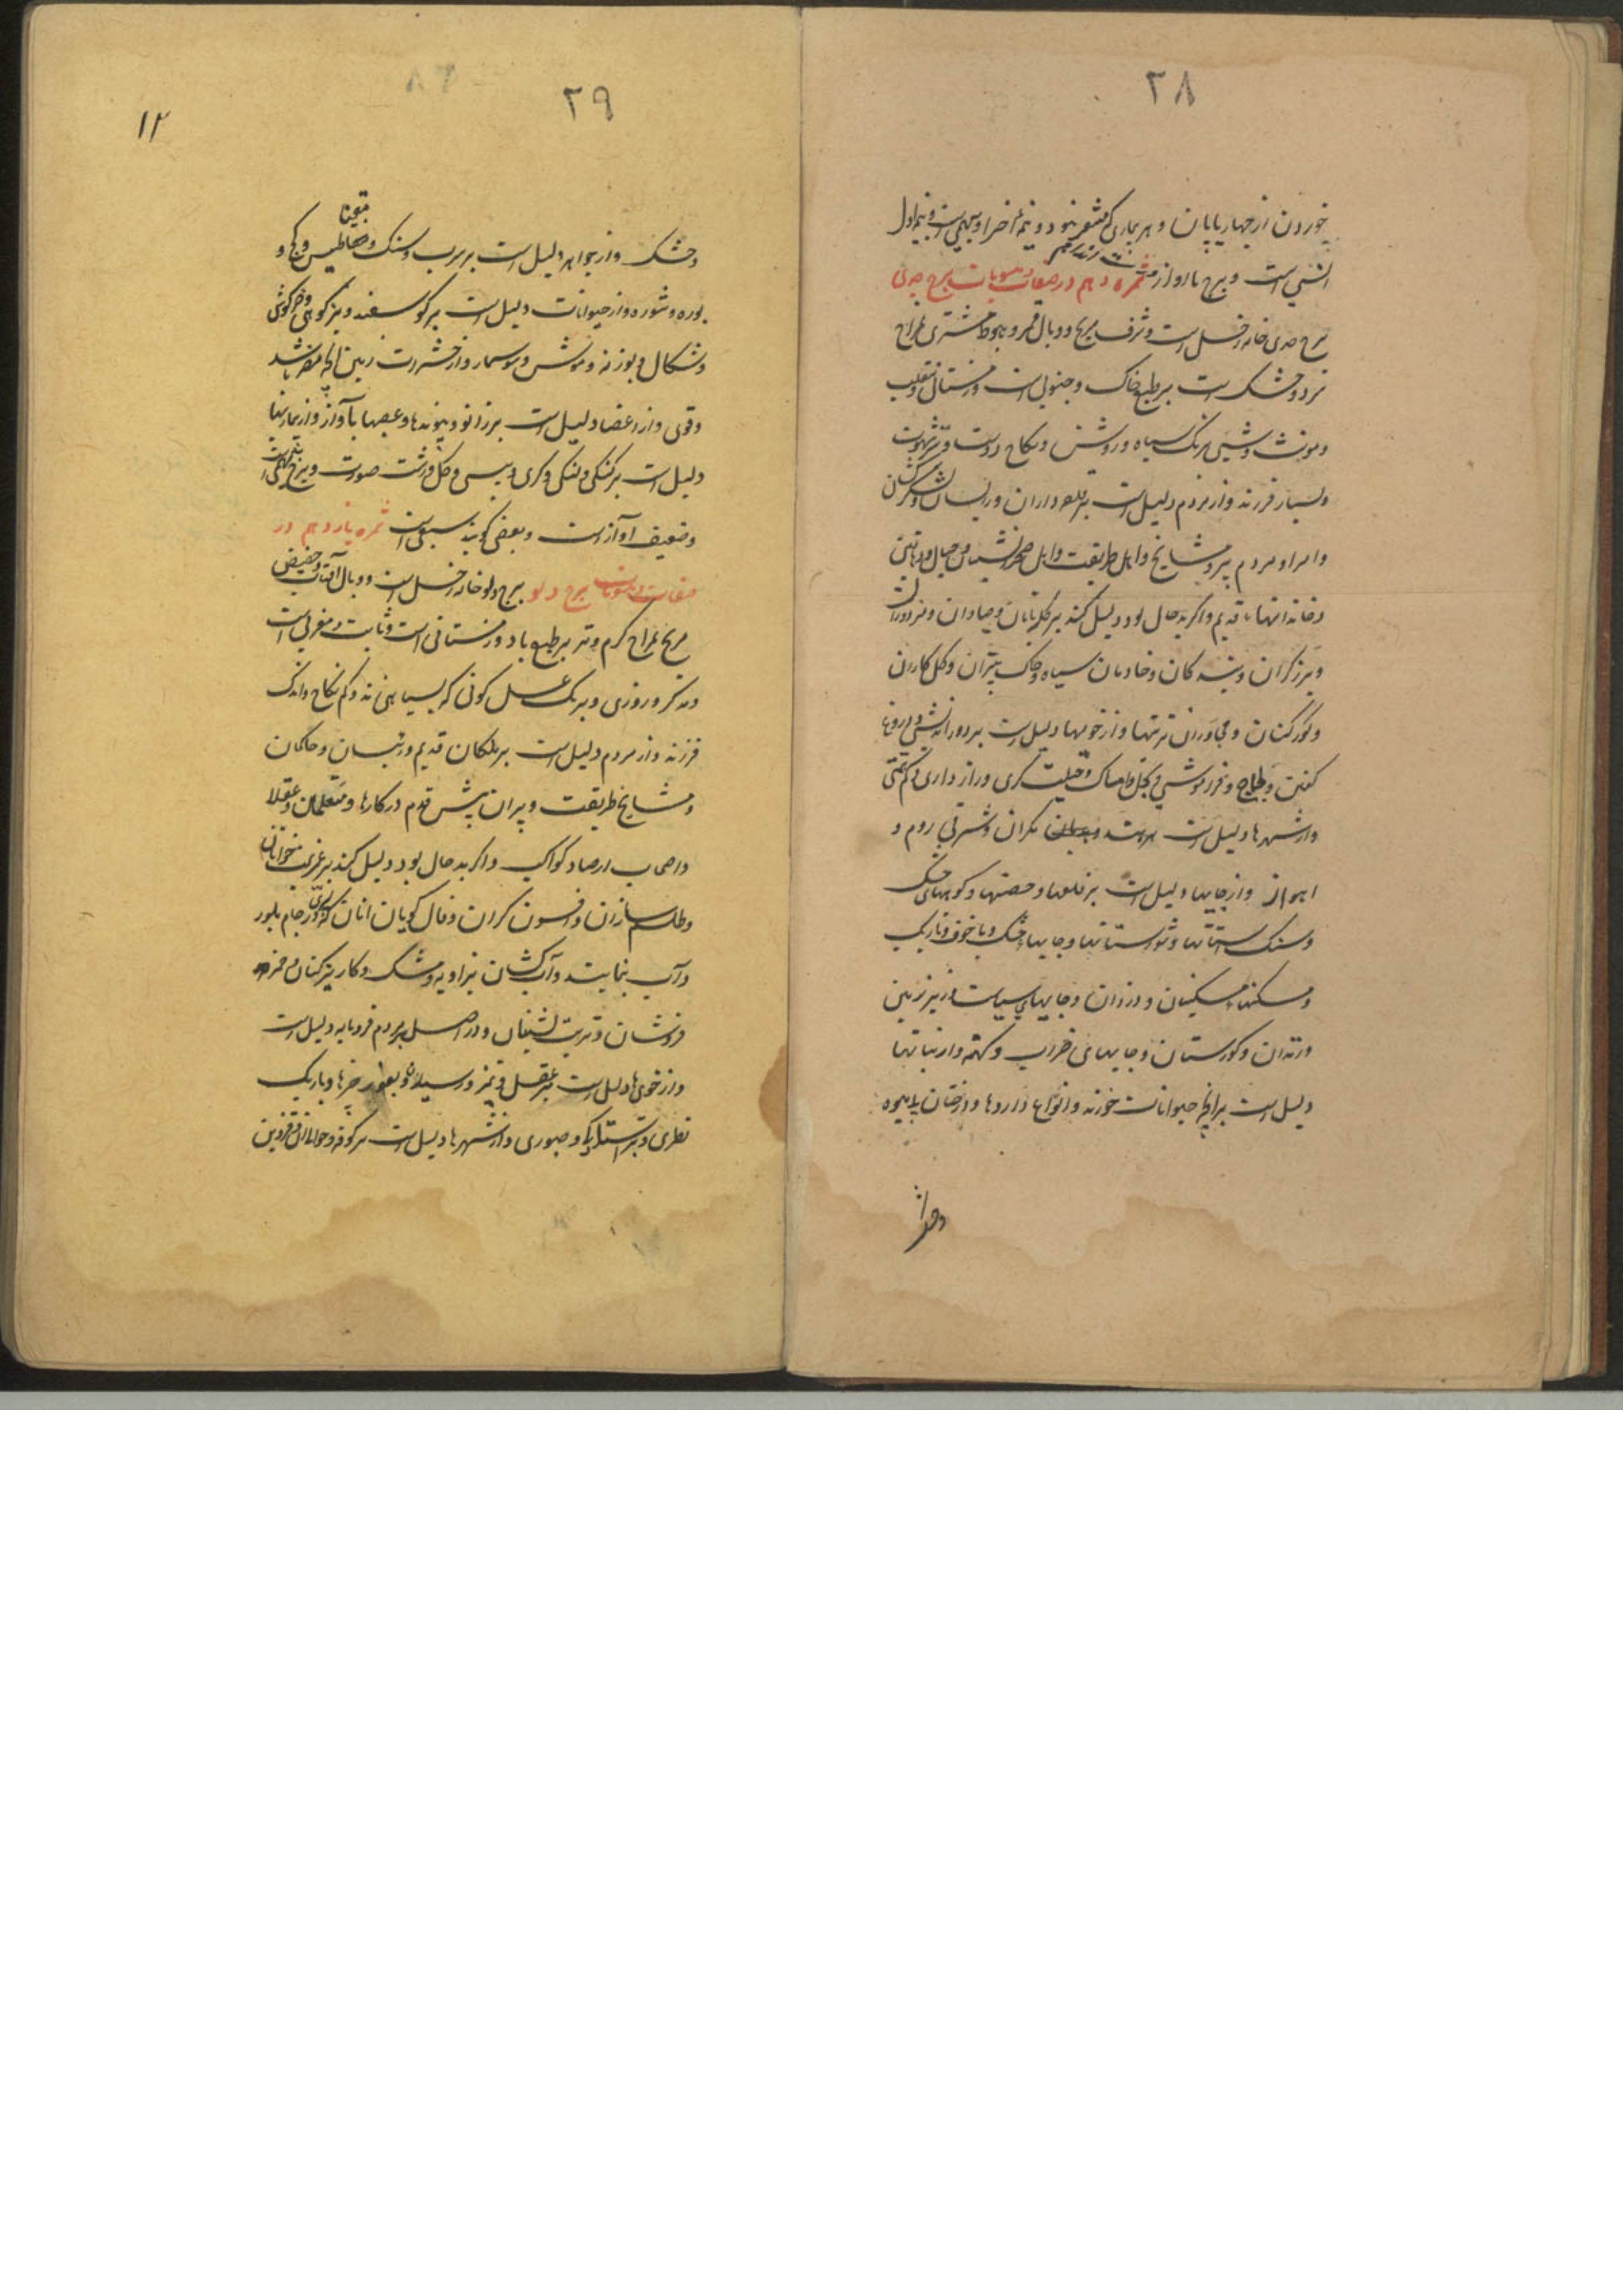 ۲۸
خوردن از چهارپایان و هر بیماری که
انسی است و برج با آواز ثمره دهم در صفات و منسوبات برج جدی
برج جدی خانه زحل است و شرف مریخ و وبال قمر و هبوط مشتری مزاج
سرد و خشک است بر طبع خاک و جنوبی است و زمستانی و منقلب
و مونث و شبی برنک سیاه و روشن و نکاح دوست و
و بسیار فرزند و از مردم دلیل است بر قلعه داران و
و امرا و مردم پیر و مشایخ و اهل طریقت و اهل و جبال و دهاقین
و خاندانهاء قدیم و اگر بد حال بود دلیل کند بر کلابانان و صیادان و مزدوران
و برزکران و بنده کان و خادمان سیاه و خاک بیزان و کل کاران
و کورکنان و مجاوران تربتها و از خویها دلیل است بر دوراندیشی و دروغ
کفتن و لجاج و فراموشی و بخل و امساک و حیلت کری و رازداری و کم سخنی
و از شهرها دلیل است مکران و شرقی روم و
اهواز و از جایها دلیل است بر قلعها و حصنها و کوههای خشک
و سنک استانها و شورستانها و جایهاء خشک و با خوف و تاریک
و مسکنهاء مسکینان و دزدان و جایهای سیاست و زیر زمین
و زندان و کورستان و جایهای خراب و کهنه و از نباتها
دلیل است بر آنچه حیوانات خورند و انواع داروها و درختان بی میوه
۲۹
۱۲
و خشک و از جواهر دلیل است بر سرب و سنک و مغناطیس و کچ و
بوره و شوره و از حیوانات دلیل است بر کوسفند و بز کوهی و خرکوش
و شکال و بوزنه و موش و سوسمار و از حشرات زمین آنچه مضر باشد
و قوی و از اعضا دلیل است بر زانو و پیوندها و عصبها با آواز و از بیماریها
دلیل است بر کنکی و لنکی و کری و پیسی و کل و زشت صورت و
و ضعیف آواز است و بعضی کویند سبعی است ثمره یازدهم در
صفات و منسوبات برج دلو برج دلو خانه زحل است و وبال آفتاب و حضیض
مریخ مزاج کرم و تر بر طبع باد و زمستانی است و ثابت و مغربی است
و مذکر و روزی و برنک عسل کونی که بسیاهی زند و کم نکاح و اندک
فرزند و از مردم دلیل است بر ملکان قدیم و رئیسان و حاکمان
و مشایخ طریقت و پیران پیش قدم در کارها و متعلمان و عقلا
و اصحاب ارصاد کواکب و اگر بد حال بود دلیل کند بر عزیمت خوانان
و طلسم سازان و افسون کران و فال کویان و آنان که پری در جام بلور
و آب نمایند و آب کشان بزاویه و مشک و کاریز کنان و
فروشان و تربت نشینان و در اصل مردم فرومایه دلیل است
و از خوی ها دلیل است بر عقل و تمیز و رسیدن بغور چیزها و باریک
نظری و صبوری و از شهرها دلیل است بر کوفه و قزوین